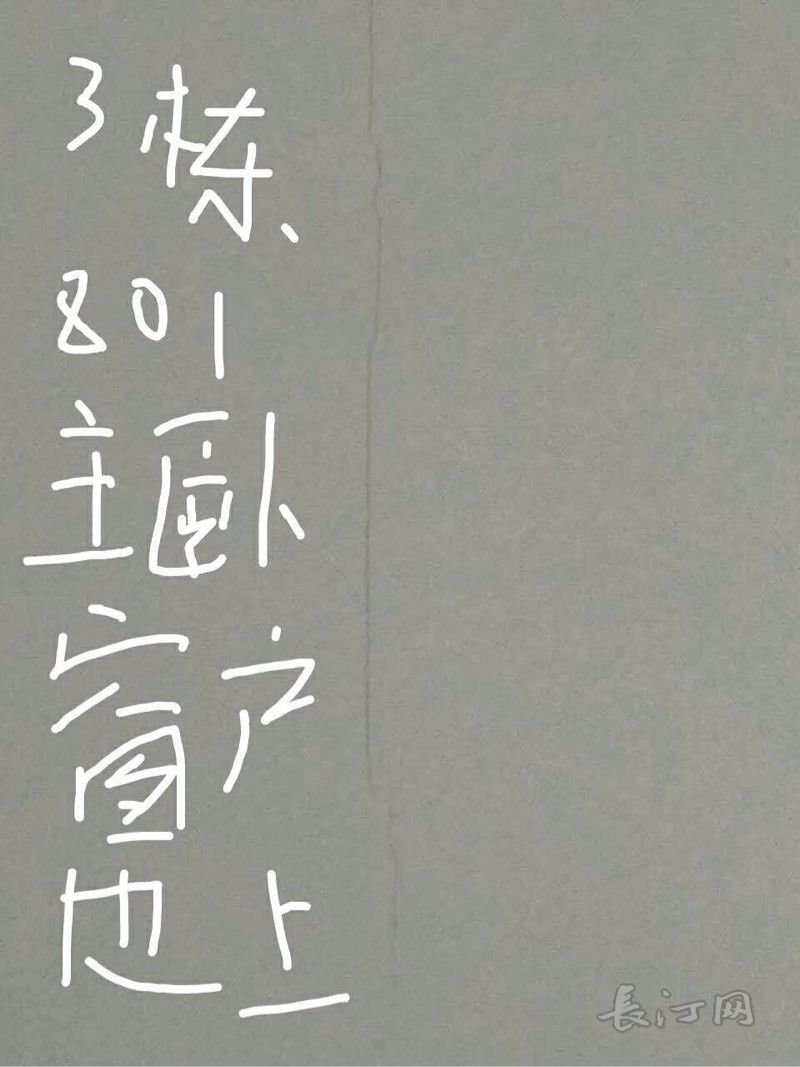 3栋
801
主卧
窗户
边上
長汀网